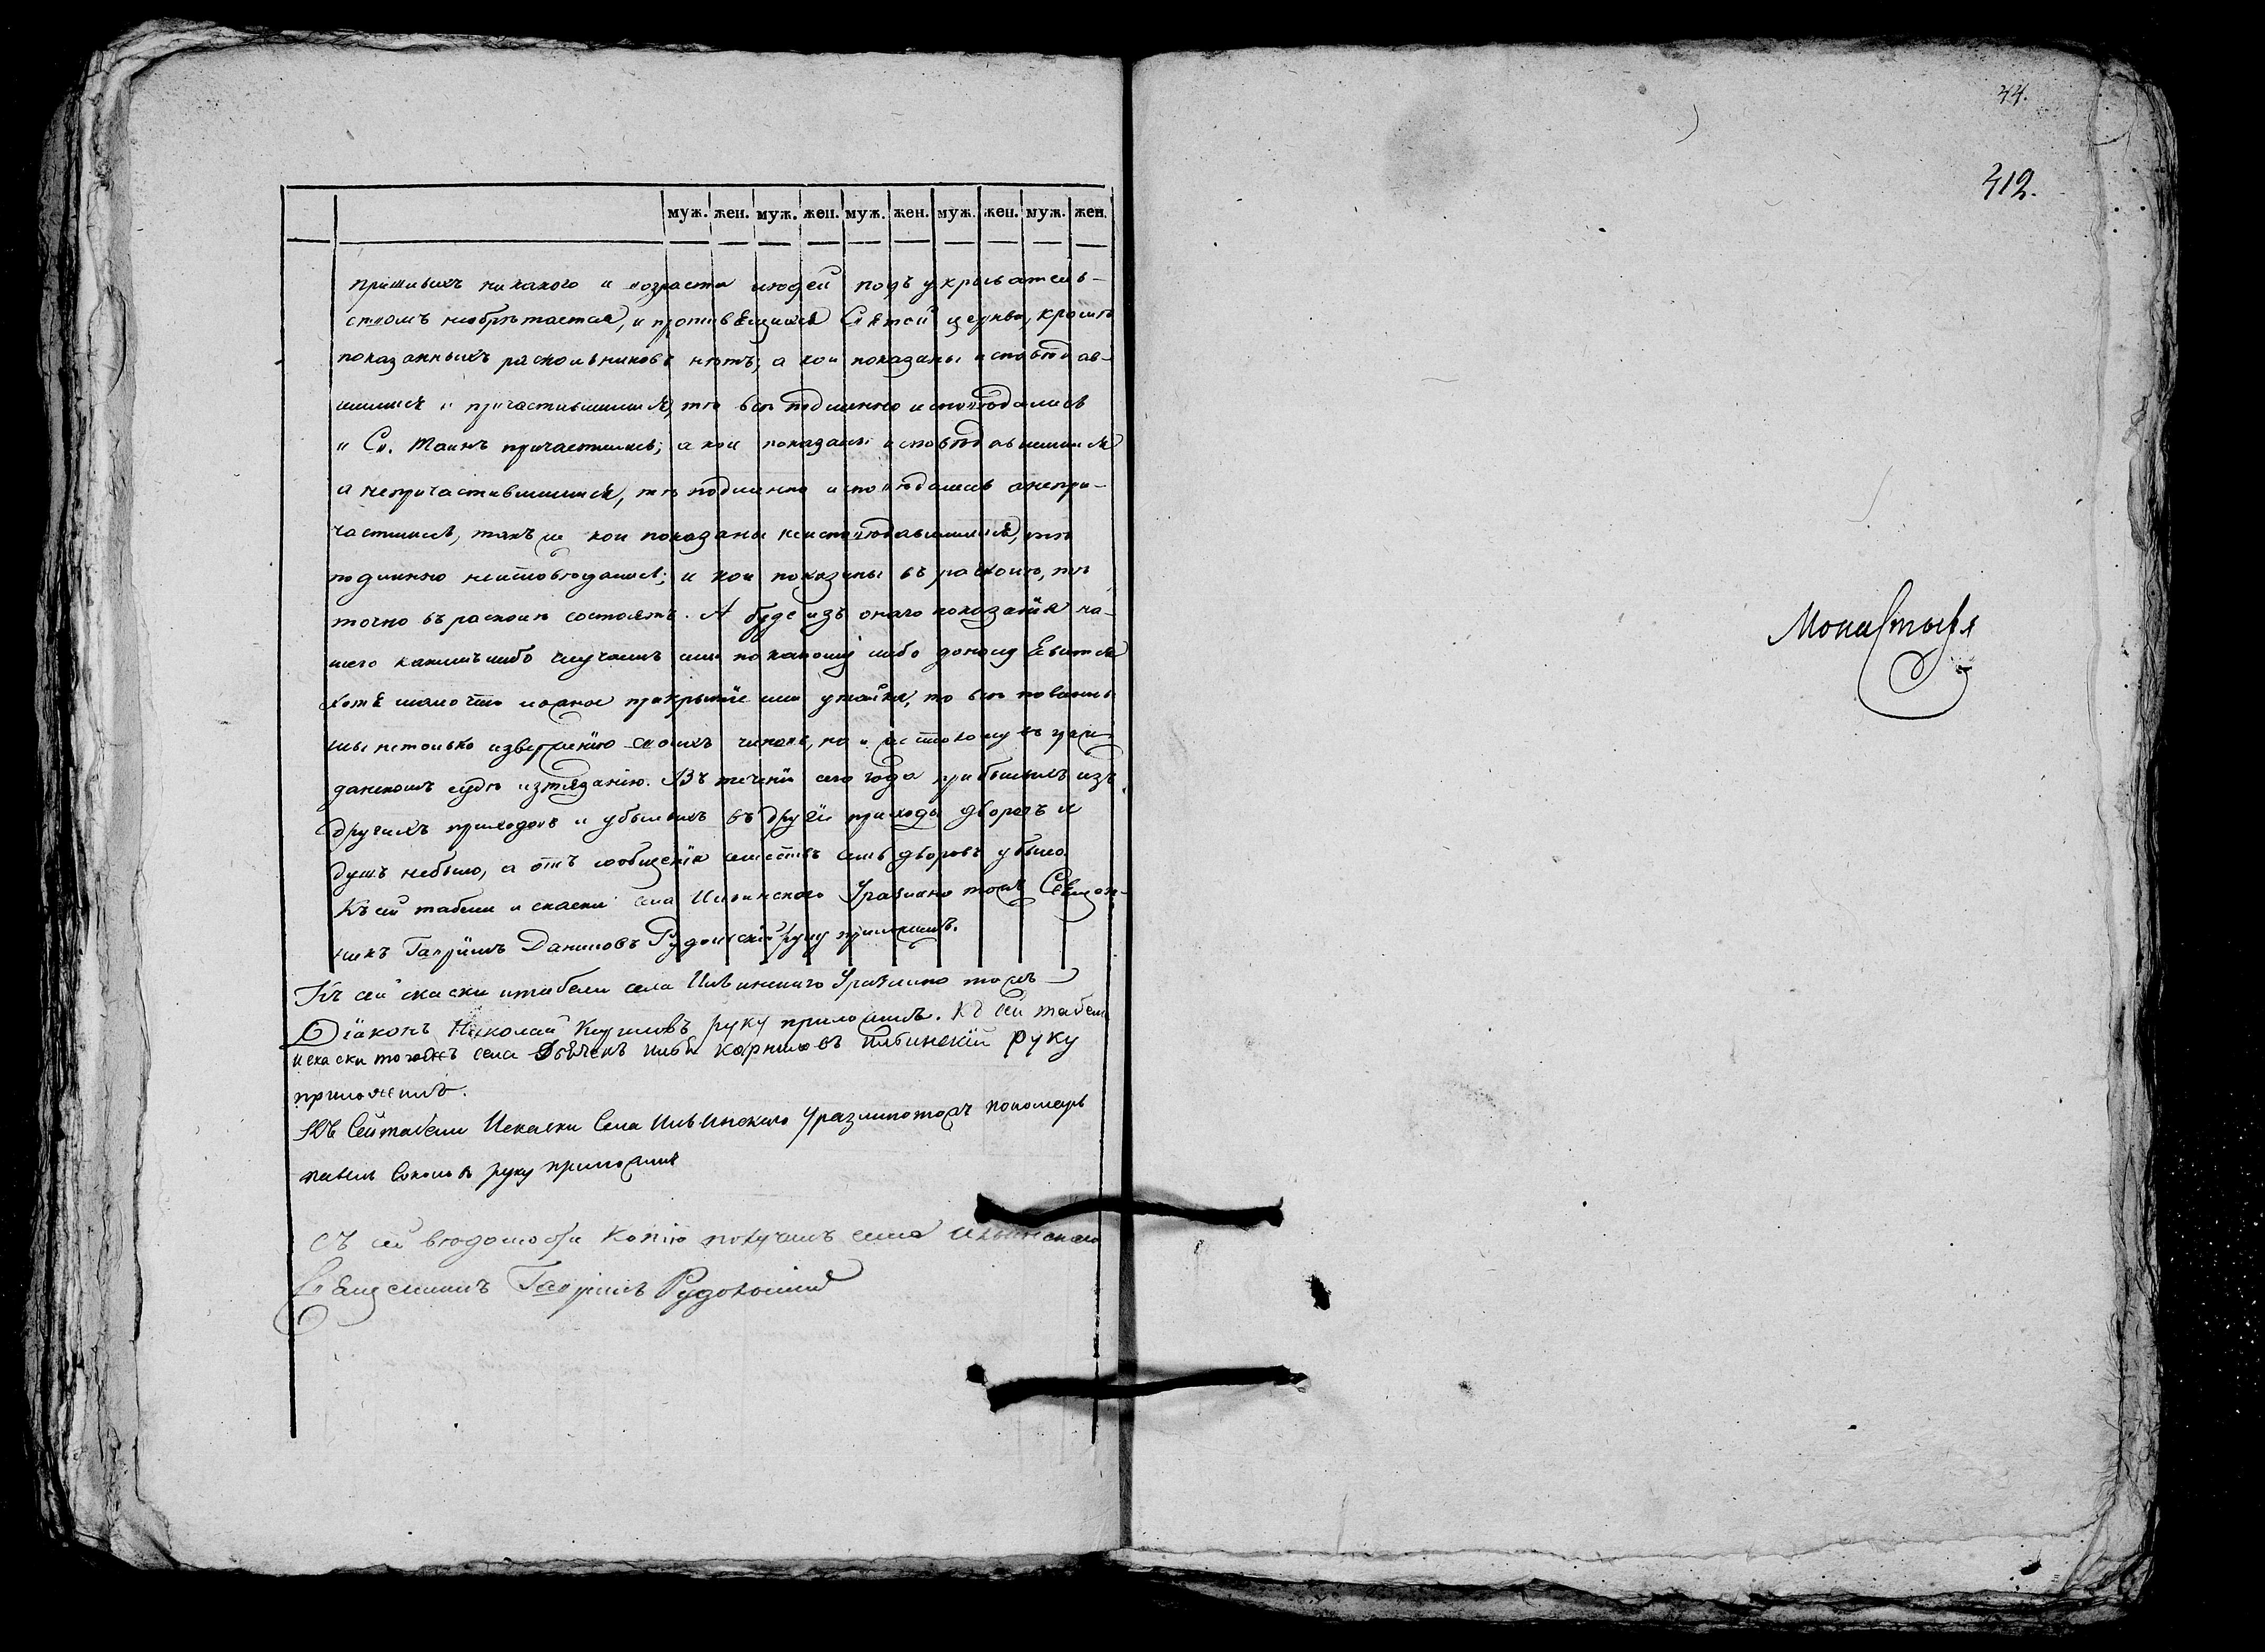 муж. жен. муж. жен. муж. жен. муж. жен. муж. жен.
пришлыхъ никакого и возраста людей подъ укрыватель-
ствомъ необрѣтается, и противящихся Святой церкви, кромѣ
показанныхъ раскольниковъ нѣтъ; а кои показаны исповѣдав-
шимися и причастившимися, тѣ всѣ подлинно исповѣдались
и Св. Таинъ причастились; а кои показаны исповѣдавшимися
а непричастившимися, тѣ подлинно исповѣдались а непри-
частились, такъ же кои показаны неисповѣдавшимися, тѣ
подлинно неисповѣдались; и кои показаны въ расколѣ, тѣ
точно въ расколѣ состоятъ. А буде изъ онаго показанїя на-
шего какимъ либо случаемъ или по какому либо доносу явится
хотя мало что ложное прикрытїе или утайка, то всѣ повинны
мы нетолько изверженїю своихъ чиновъ, но и жестокому въ граж-
данскомъ судѣ изтязанїю. Въ теченїи сего года прибылыхъ изъ
другихъ приходовъ и убылыхъ въ другїе приходы дворовъ и
душъ небыло, а отъ сообщенїя семействъ семь дворовъ убыло
Къ сей табели и скаски села Ильинского Уразлино тожъ Священ-
никъ Гаврїилъ Даниловъ Рудольскїй руку приложилъ.
Къ сей скаски итабели села Ильинскаго Уразлино тожъ
Дїаконъ Николай Кириловъ руку приложилъ. Къ сей табели
искаски тогожъ села Дьячекъ Илья Корниловъ Ильинскїй руку
приложилъ.
Къ Сей табели Искаски Села Ильинскаго Уразлинотожъ пономарь
павелъ Соколовъ руку приложилъ
Съ сей вѣдомости копїю получилъ села Ильинскаго
Священникъ Гаврїилъ Рудольскїй
44.
412.
Монастыря